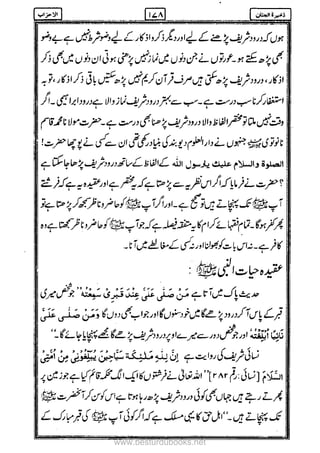 ذخيرة الجنان
۱۷۸
الاحزاب
ہوں کہ درود شریف پڑھنے کے لیے اور دیگر ذکر و اذکار کے لیے وضو شرط نہیں ہے بے وضو
بھی پڑھ سکتے ہو۔ عورتوں نے جن دنوں میں نماز نہیں پڑھنی ہوتی ان دنوں میں بھی ذکر
اذکار، درود شریف پڑھ سکتی ہیں صرف قرآن کریم نہیں پڑھ سکتیں باقی ذکر اذکار، توبہ
استغفار کرنا سب درست ہے۔ سب سے بہتر درود شریف نماز والا ہے درود ابراہیمی۔ اگر
وقت نہیں ملتا تو مختصر الفاظ والا درود شریف پڑھنا بھی درست ہے۔ حضرت مولانا محمد قاسم
نانوتوی جنہوں نے دار العلوم دیوبند کی بنیاد رکھی تھی ان سے کسی نے پوچھا حضرت!
الصلوة والسلام علیک یا رسول الله کے الفاظ کے ساتھ درود شریف پڑھا جا سکتا ہے
؟ حضرت نے فرمایا کہ اگر اس نظریہ سے پڑھتا ہے کہ یہ مختصر ہے اور عقیدہ یہ ہے کہ فرشتے
آپ ﷺ تک پہنچاتے ہیں تو صحیح ہے۔ اور اگر آپ ﷺ کو حاضر و ناظر سمجھ کر پڑھتا ہے تو
پھر کفر ہوگا۔ تمام فقہائے کرام کا یہ متفقہ فیصلہ ہے کہ جو آپ ﷺ کو حاضر و ناظر سمجھتا ہے وہ
کافر ہے۔ نہ اس بات کو بھولنا اور نہ کسی کے مغالطے میں آنا۔
عقیدہ حیات النبی ﷺ :
حدیث پاک میں آتا ہے مَنْ صَلّٰی عَلَیَّ عِنْدَ قَبْرِیْ سَمِعْتُهٗ "جو شخص میری
قبر کے پاس آ کر درود پڑھے گا میں خود سنوں گا اور جواب بھی دوں گا وَمَنْ صَلّٰی عَلَیَّ
نَائِیًا اُبْلِغْتُهٗ اور جو شخص دور سے میرے اوپر درود شریف پڑھے گا مجھے پہنچایا جائے گا۔"
نسائی شریف کی روایت ہے اِنَّ لِلّٰهِ مَلٰٓئِکَةً سَیَّاحِیْنَ یُبَلِّغُوْنِیْ مِنْ اُمَّتِیْ
السَّلَامَ [نسائی: رقم ۱۲۸۲] "اللہ تعالیٰ نے فرشتوں کا ایک الگ محکمہ قائم کیا ہے جو زمین پر
پھرتے رہتے ہیں جہاں بھی کوئی درود شریف پڑھ رہا ہوتا ہے اس کو سن کر آنحضرت ﷺ
تک پہنچاتے ہیں۔" اہل حق کا یہی مسلک ہے کہ اگر کوئی آپ ﷺ کی قبر مبارک کے
www.besturdubooks.net